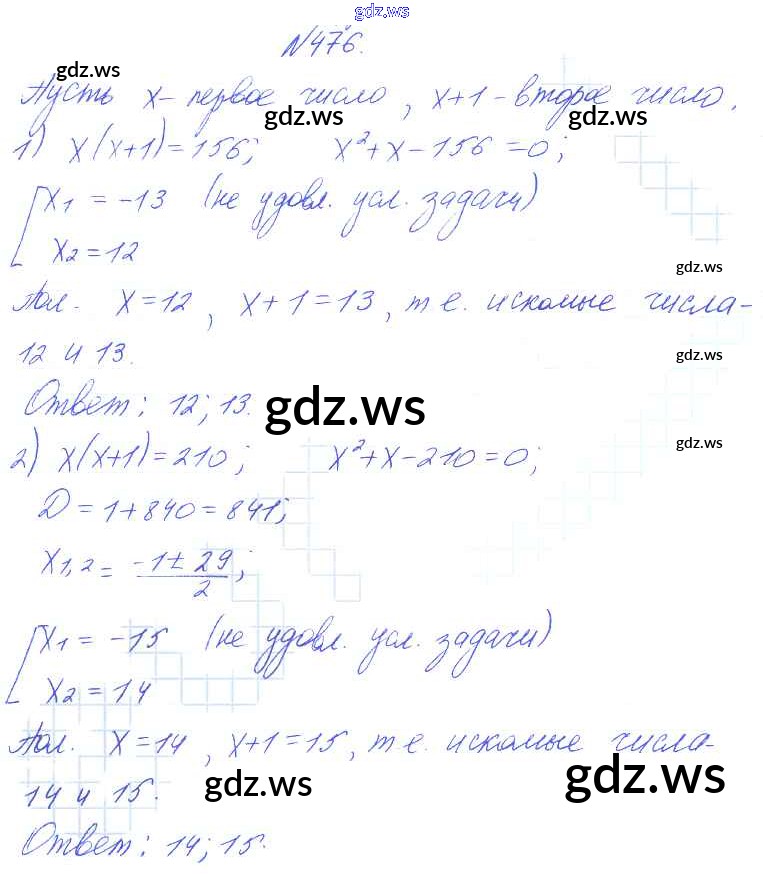 gdz.ws
N476.
gdz.ws
Пусть x - первое число, x+1 - второе число.
gdz.ws gdz.ws
1) x(x+1)=156; x²+x-156=0;
[x₁ = -13 (не удовл. усл. задачи)
x₂ = 12
gdz.ws
Пол. x=12, x+1=13, т.е. искомые числа-
12 и 13.
gdz.ws
Ответ: 12; 13.
gdz.ws
gdz.ws
2) x(x+1)=210; x²+x-210=0;
D = 1+840=841;
x₁,₂ = (-1±29)/2;
[x₁ = -15 (не удовл. усл. задачи)
x₂ = 14
Пол. x=14, x+1=15, т.е. искомые числа-
14 и 15.
gdz.ws gdz.ws
Ответ: 14; 15.